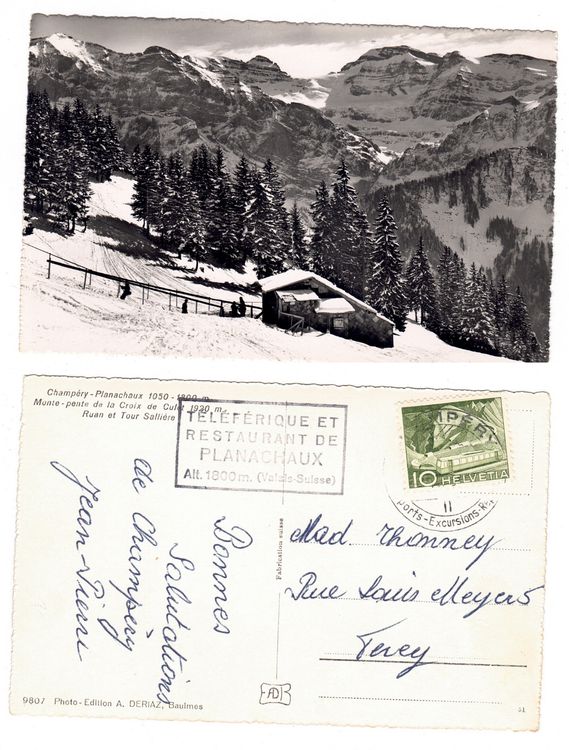 Champéry-Planachaux 1050-1800 m.
Monte-pente de la Croix de Culet 1920 m.
Ruan et Tour Sallière
TÉLÉFÉRIQUE ET
RESTAURANT DE
PLANACHAUX
Alt. 1800 m. (Valais-Suisse)
Bonnes
Salutations
de Champéry
Jean-Pierre
Fabrication suisse
10 HELVETIA
II
Mad. Thonney
Rue Louis Meyer 5
Vevey
9807 Photo-Edition A. DERIAZ, Baulmes
AD
51